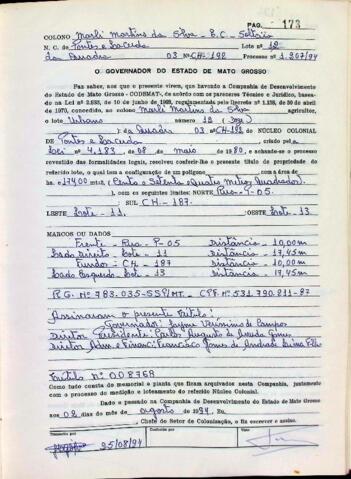 PAG. 173
COLONO Marli Martins da Silva - B.C. - Solteira
N. C. de Pontes e Lacerda Lote nº 12
da Quadra 03 Nº CH-192 Processo nº 1.207/94
O GOVERNADOR DO ESTADO DE MATO GROSSO
Faz saber, aos que o presente virem, que havendo a Companhia de Desenvolvimento
do Estado de Mato Grosso - CODEMAT-, de acôrdo com os pareceres Técnico e Jurídico, baseados
na Lei nº 2.838, de 10 de junho de 1968, regulamentada pelo Decreto nº 1.138, de 30 de abril
de 1970, concedido, ao colono Marli Martins da Silva agricultor,
o lote Urbano número 12 (Doze)
da Quadra 03 nº CH-192 NÚCLEO COLONIAL
DE Pontes e Lacerda criado pela
Lei nº 4.183, de 08, de maio de 1980, e achando-se o processo
revestido das formalidades legais, resolveu conferir-lhe o presente título de propriedade do
referido lote, o qual tem a configuração de um polígono com a área de
174,00 mt2 (Cento e Setenta e Quatro Metros Quadrados)
com os seguintes limites: NORTE Rua P-05
SUL CH-187.
LESTE Lote-11. OESTE Lote-13
MARCOS OU DADOS
Frente - Rua P-05 Distância - 10,00m
Lado Direito - Lote - 11 Distância - 17,45m
Fundo - CH - 187 Distância - 10,00m
Lado Esquerdo - Lote - 13 Distância - 17,45m
R.G. Nº 783.035-SSP/MT. - CPF. Nº 531.790.811-87
Assinaram o presente Título:
Governador: Jayme Veríssimo de Campos
Diretor Presidente: Carlos Augusto de Arruda Gomes
Diretor Adm e Financ: Francisco Gomes de Andrade Lima Filho
Título Nº 008768
Como tudo consta do memorial e planta que ficam arquivados nesta Companhia, juntamente
com o processo de medição e loteamento do referido Núcleo Colonial.
Dado e passado na Companhia de Desenvolvimento do Estado de Mato Grosso
aos 02 dias do mês de agosto de 1994. Eu,
Chefe do Setor de Colonização, o fiz escrever e assino.
Conferido por
Visto
25/08/94